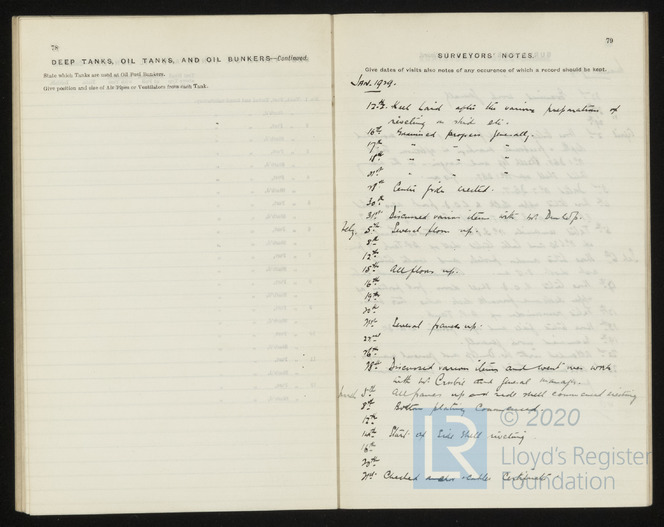 78
DEEP TANKS, OIL TANKS, AND OIL BUNKERS—Continued.
State which Tanks are used as Oil Fuel Bunkers.
Give position and size of Air Pipes or Ventilators from each Tank.
79
SURVEYORS' NOTES.
Give dates of visits also notes of any occurence of which a record should be kept.
Jan. 1929.
12th. Keel laid after the various preparations of
riveting on skid etc.
16th. Examined progress generally.
17th " " "
18th " " "
" " "
Centre girder erected.
30th
31st Discussed various items with Mr Dunlop.
Feby. 5th Several floors up.
8th
12th
15th All floors up.
16th
19th
Several frames up.
22nd
26th
28th Discussed various items and went over work
with Mr and general manager.
March 5th All frames up and side shell commenced erecting
8th Bottom plating Commenced
12th
14th Start of Side Shell riveting
16th
Checked Certificate
© 2020
LR
Lloyd's Register
Foundation